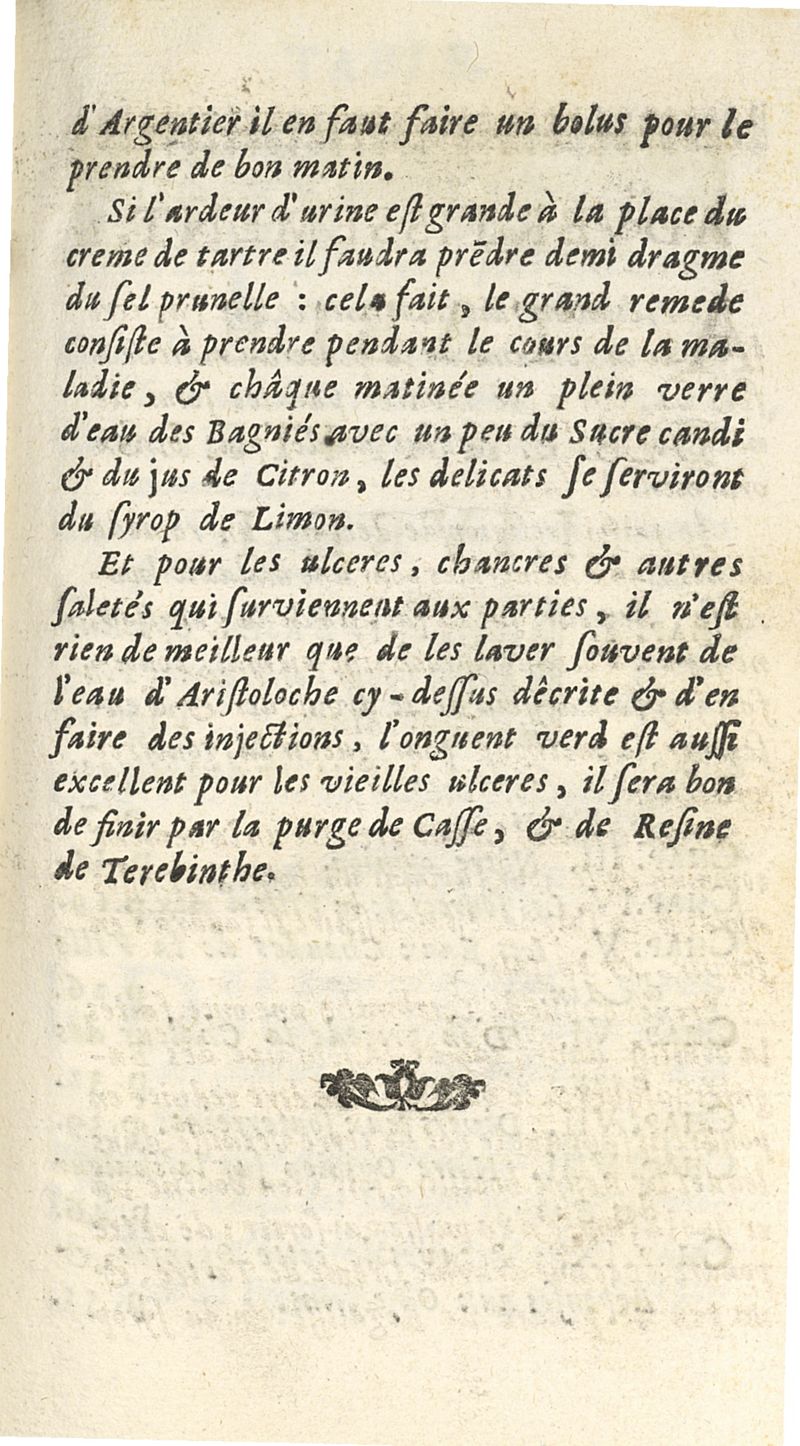 d'Argentier il en faut faire un bolus pour le
prendre de bon matin.
Si l'ardeur d'urine eſt grande à la place du
creme de tartre il faudra prēdre demi dragme
du ſel prunelle : cela fait, le grand remede
conſiſte à prendre pendant le cours de la ma-
ladie, & châque matinée un plein verre
d'eau des Bagniés avec un peu du Sucre candi
& du jus de Citron, les delicats ſe ſerviront
du ſyrop de Limon.
Et pour les ulceres, chancres & autres
ſaletés qui ſurviennent aux parties, il n'eſt
rien de meilleur que de les laver ſouvent de
l'eau d'Ariſtoloche cy-deſſus dêcrite & d'en
faire des injections, l'onguent verd eſt auſſi
excellent pour les vieilles ulceres, il ſera bon
de finir par la purge de Caſſe, & de Reſine
de Terebinthe.